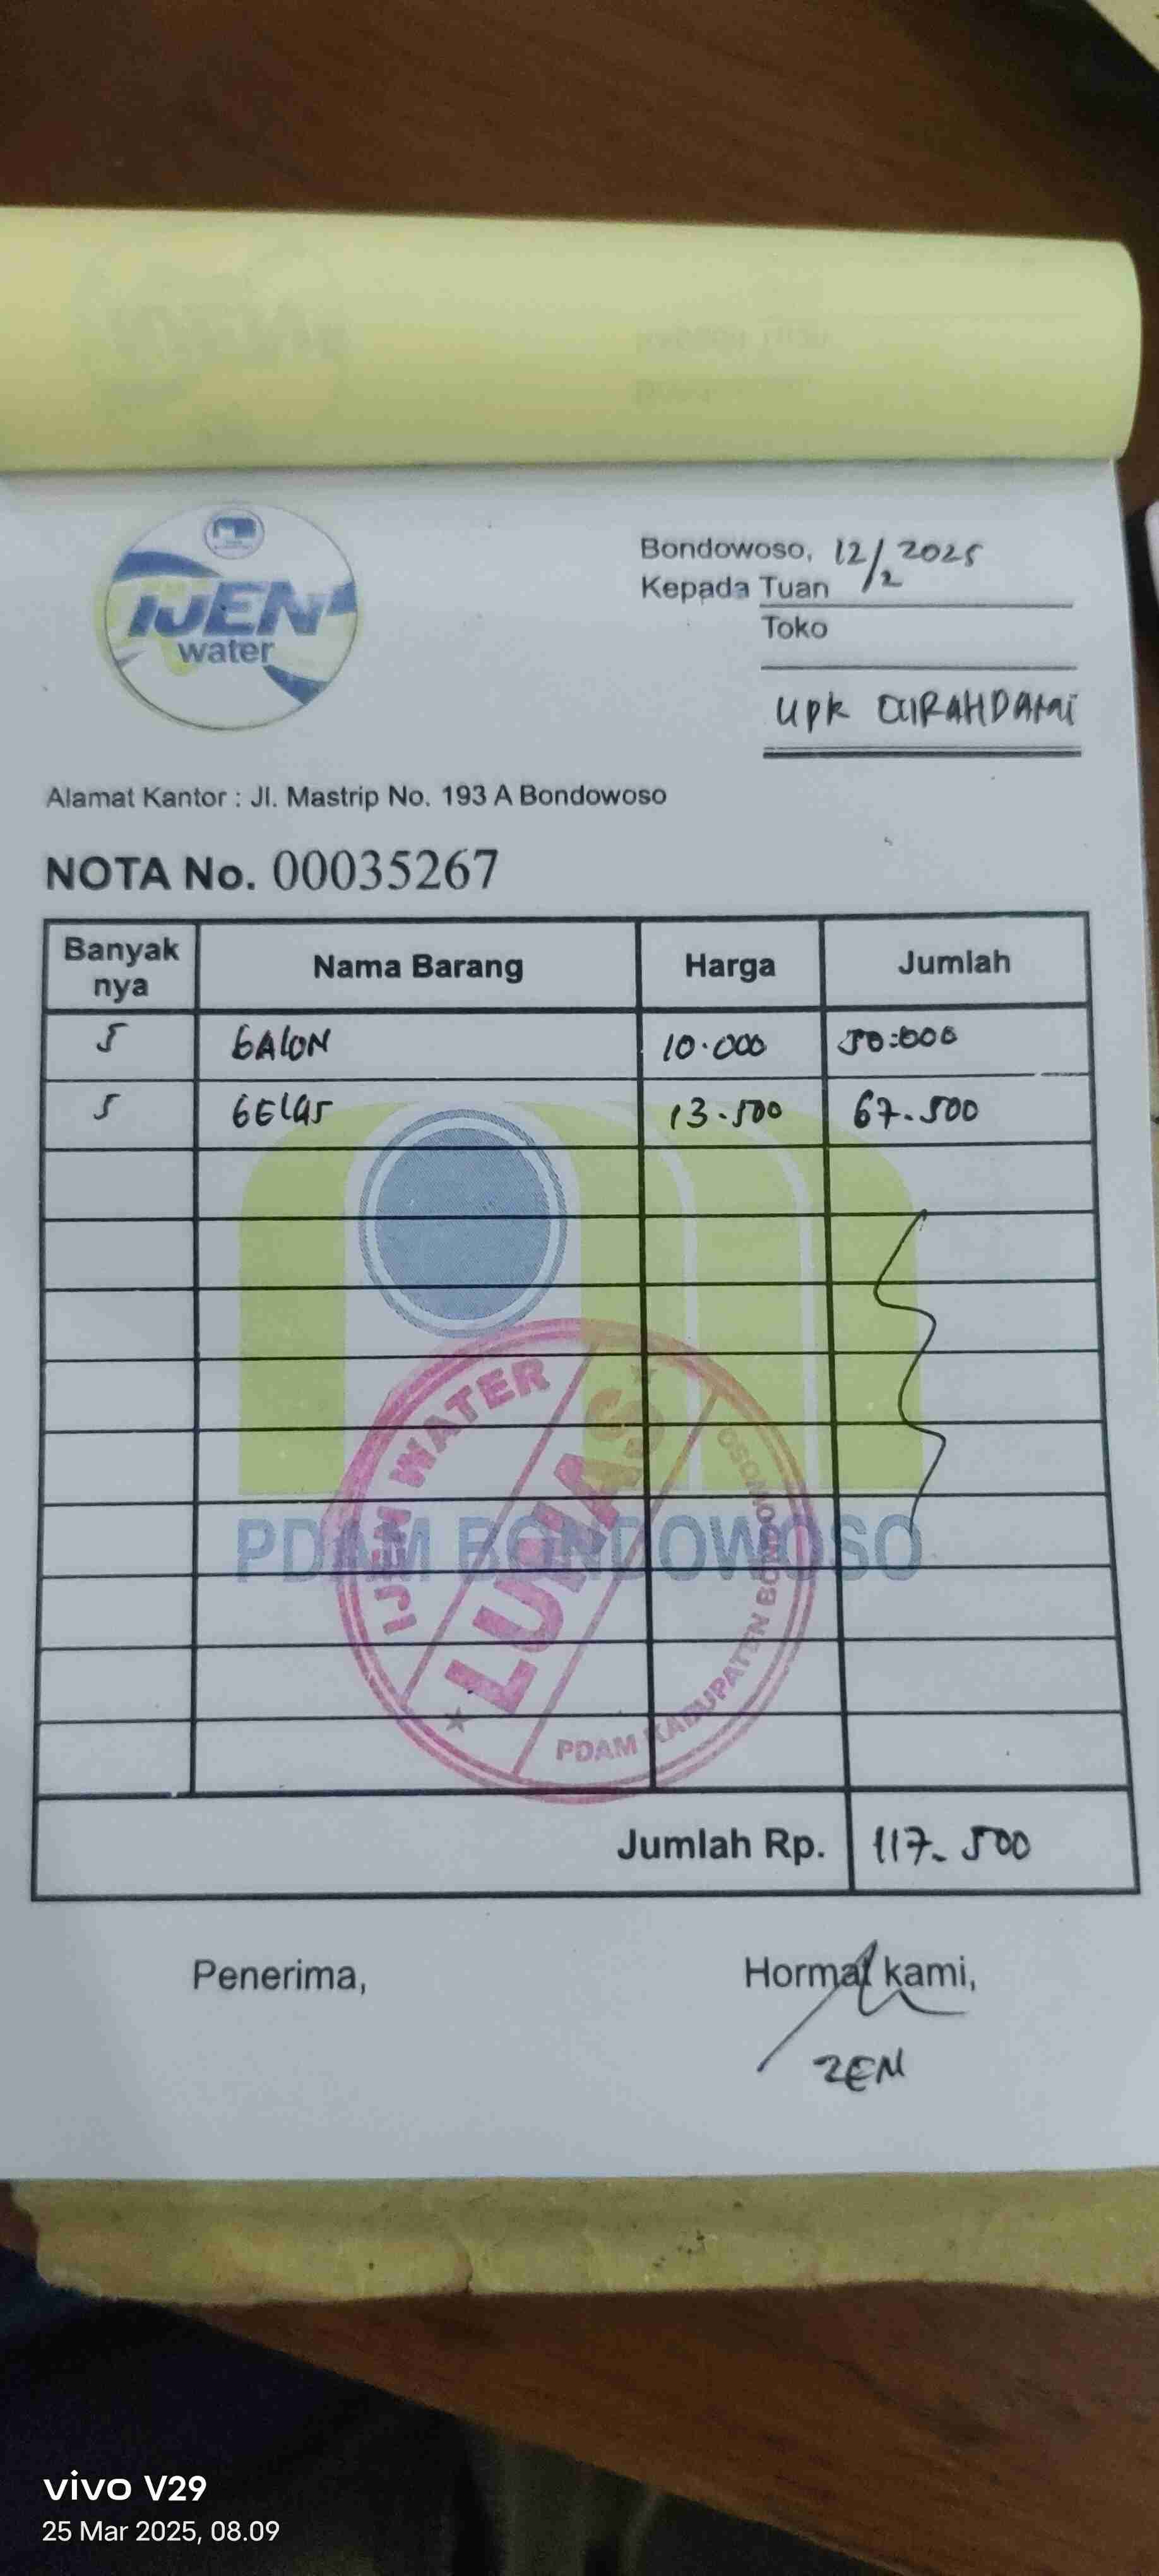 IJEN
water
Bondowoso, 12/2 2025
Kepada Tuan
Toko
UPK CURAHDAMI
Alamat Kantor : Jl. Mastrip No. 193 A Bondowoso
NOTA No. 00035267
Banyak nya Nama Barang Harga Jumlah
5 GALON 10.000 50.000
5 GELAS 13.500 67.500
PDAM BONDOWOSO
IJEN WATER
LUNAS
PDAM KABUPATEN BONDOWOSO
Jumlah Rp. 117.500
Penerima, Hormat kami,
ZEN
vivo V29
25 Mar 2025, 08.09